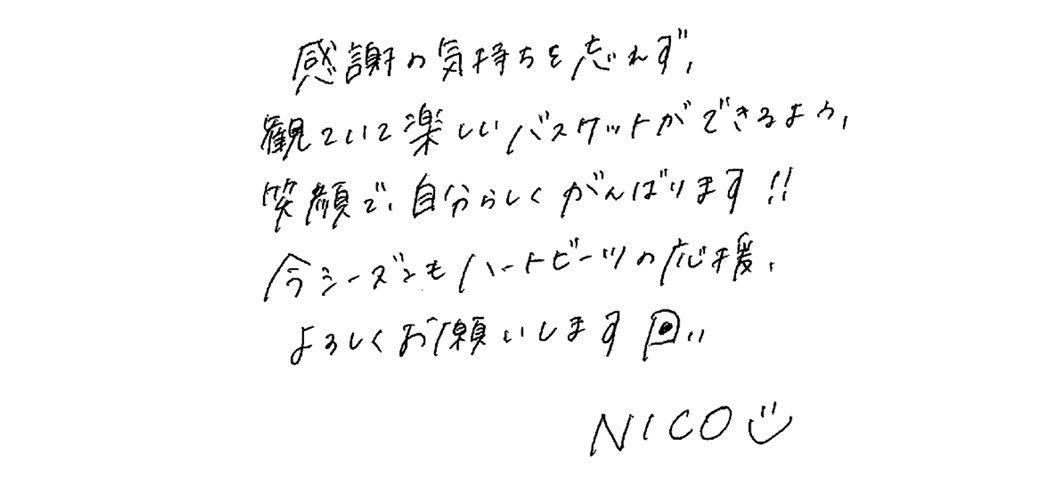 感謝の気持ちを忘れず、
観ていて楽しいバスケットができるよう、
笑顔で、自分らしくがんばります!!
今シーズンもハートビーツの応援、
よろしくお願いします
NICO